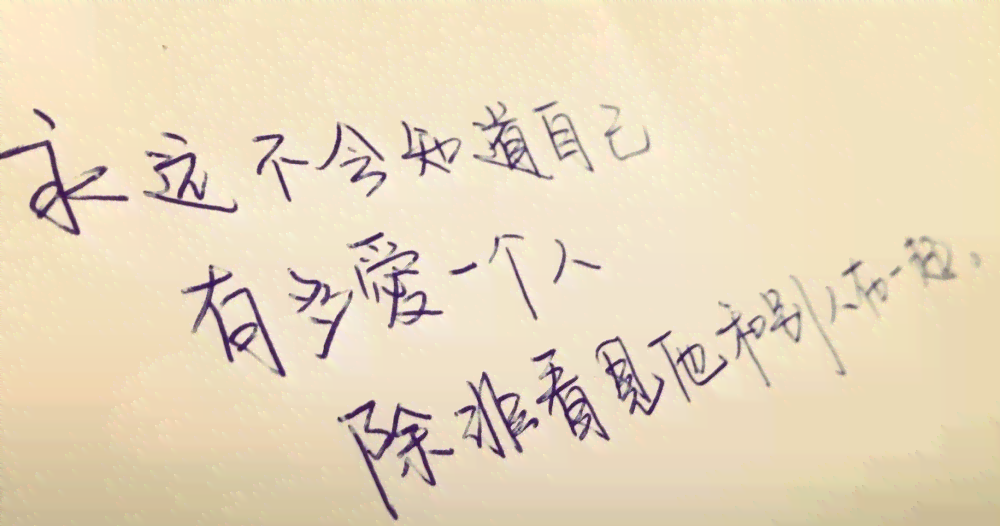 永远不会知道自己
有多爱一个人
除非看见他和别人在一起、